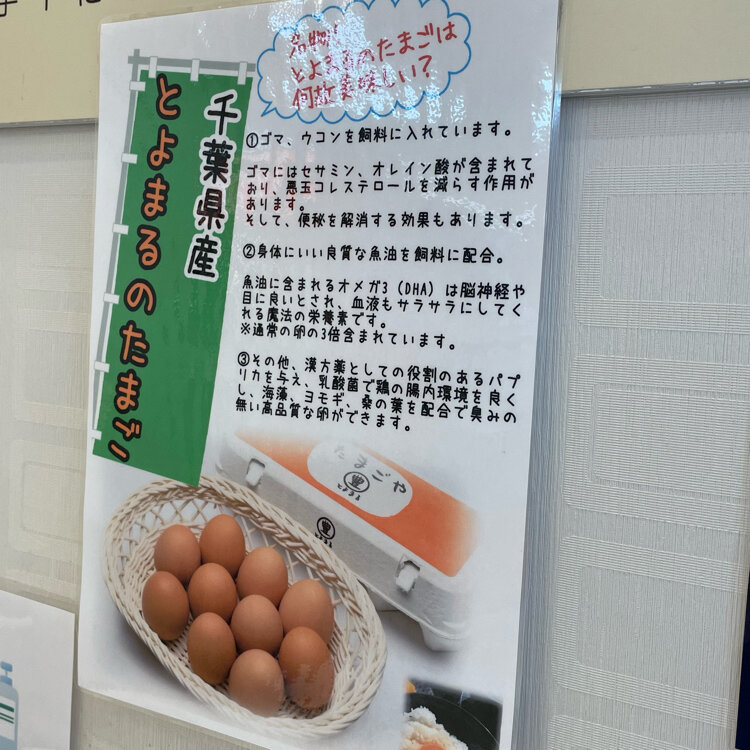 名物!
とよまるのたまごは
何故美味しい?
千葉県産
とよまるのたまご
①ゴマ、ウコンを飼料に入れています。
ゴマにはセサミン、オレイン酸が含まれて
おり、悪玉コレステロールを減らす作用が
あります。
そして、便秘を解消する効果もあります。
②身体にいい良質な魚油を飼料に配合。
魚油に含まれるオメガ3(DHA)は脳神経や
目に良いとされ、血液もサラサラにしてく
れる魔法の栄養素です。
※通常の卵の3倍含まれています。
③その他、漢方薬としての役割のあるパプ
リカを与え、乳酸菌で鶏の腸内環境を良く
し、海藻、ヨモギ、桑の葉を配合で臭みの
無い高品質な卵ができます。
たまごや
豊
とよまる
豊